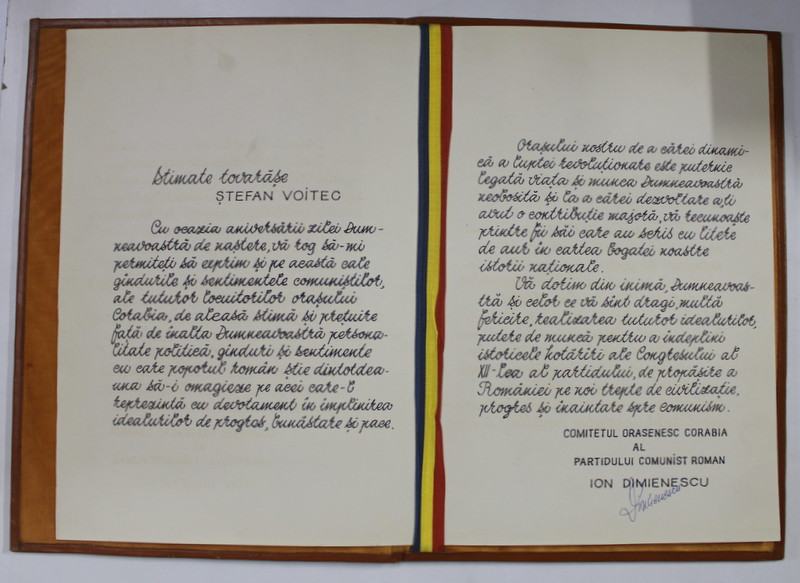 Stimate tovarăşe
ŞTEFAN VOITEC
Cu ocazia aniversării zilei Dum-
neavoastră de naştere, vă rog să-mi
permiteţi să exprim şi pe acastă cale
gîndurile şi sentimentele comuniştilor,
ale tuturor locuitorilor oraşului
Corabia, de aleasă stimă şi preţuire
faţă de înalta Dumneavoastră persona-
litate politică, gînduri şi sentimente
cu care poporul român ştie dintotdea-
una să-i omagieze pe acei care-l
reprezintă cu devotament în împlinirea
idealurilor de progres, bunăstare şi pace.
Oraşului nostru de a cărei dinami-
că a luptei revoluţionare este puternic
legată viaţa şi munca Dumneavoastră
neobosită şi la a cărei dezvoltare aţi
avut o contribuţie majoră, vă recunoaşte
printre fii săi care au schis cu litere
de aur în cartea bogatei noastre
istorii naţionale.
Vă dorim din inimă, Dumneavoas-
tră şi celor ce vă sînt dragi, multă
fericire, realizarea tuturor idealurilor,
putere de muncă pentru a îndeplini
istoricele hotărîri ale Congresului al
XII-lea al partidului, de propăşire a
României pe noi trepte de civilizaţie,
progres şi înaintare spre comunism.
COMITETUL ORASENESC CORABIA
AL
PARTIDULUI COMUNIST ROMAN
ION DIMIENESCU
Dimienescu